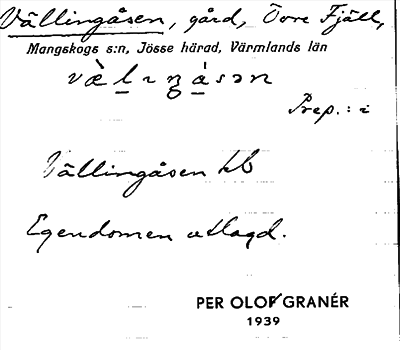 Vällingåsen, gård, Övre Fjäll,
Mangskogs s:n, Jösse härad, Värmlands län
Prep. : i
Vällingåsen hb
Egendomen utlagd.
PER OLOF GRANÉR
1939